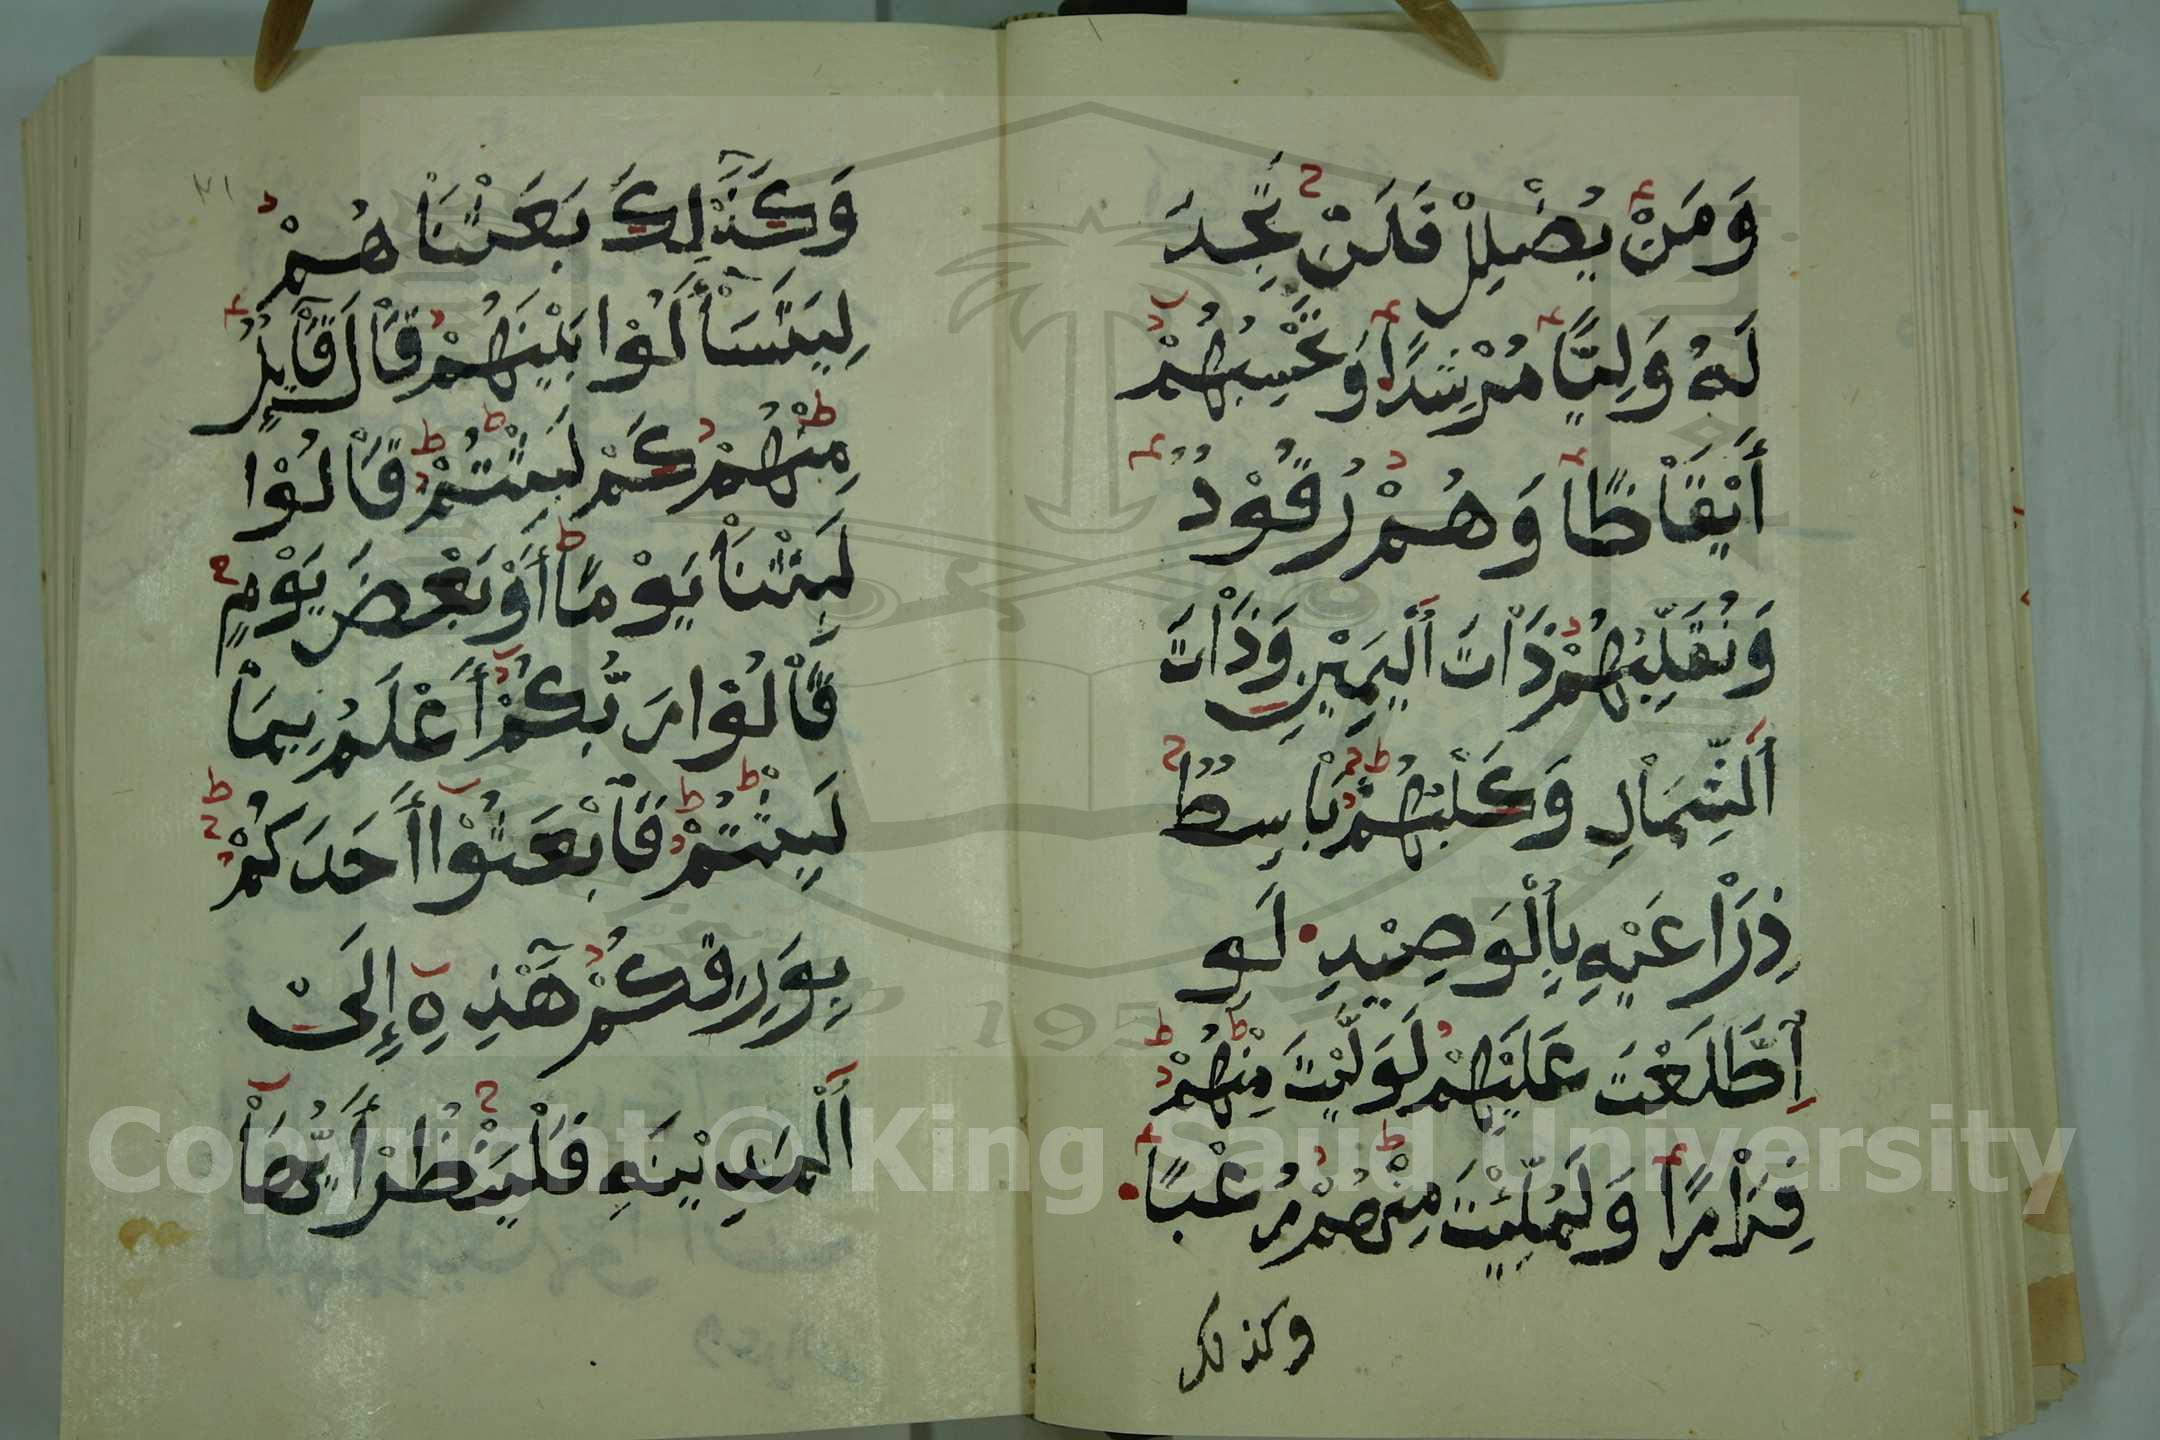 وَمَنْ يُضْلِلْ فَلَنْ تَّجِدَ
لَهُ وَلِيًّا مُرْشِدًا وَتَحْسِبُهُمْ
أَيْقَاظًا وَهُمْ رُقُوْدٌ
وَنُقَلِّبُهُمْ ذَاْتَ اَلْيَمِيْنِ وَذَاْتَ
اَلشِّمَاْلِ وَكَلْبُهُمْ بَاْسِطٌ
ذِرَاْعَيْهِ بِاَلْوَصِيْدِ لَوِ
اِطَّلَعْتَ عَلَيْهِمْ لَوَلَّيْتَ مِنْهُمْ
فِرَاْرًا وَلَمُلِّئْتَ مِنْهُمْ رُعْبًا
وكذلك
٢١
وَكَذَٰلِكَ بَعَثْنَاْهُمْ
لِيَتَسَاْأَلُوْا بَيْنَهُمْ قَاْلَ قَاْيِلٌ
مِنْهُمْ كَمْ لَبِثْتُمْ قَاْلُوْا
لَبِثْنَاْ يَوْمًا أَوْ بَعْضَ يَوْمٍ
قَاْلُوْا رَبُّكُمْ أَعْلَمُ بِمَاْ
لَبِثْتُمْ فَاْبْعَثُوْا أَحَدَكُمْ
بِوَرِقِكُمْ هَٰذِهِ إِلَىْ
اَلْمَدِيْنَهِ فَلْيَنْظُرْ أَيُّهَاْ
Copyright © King Saud University
1957